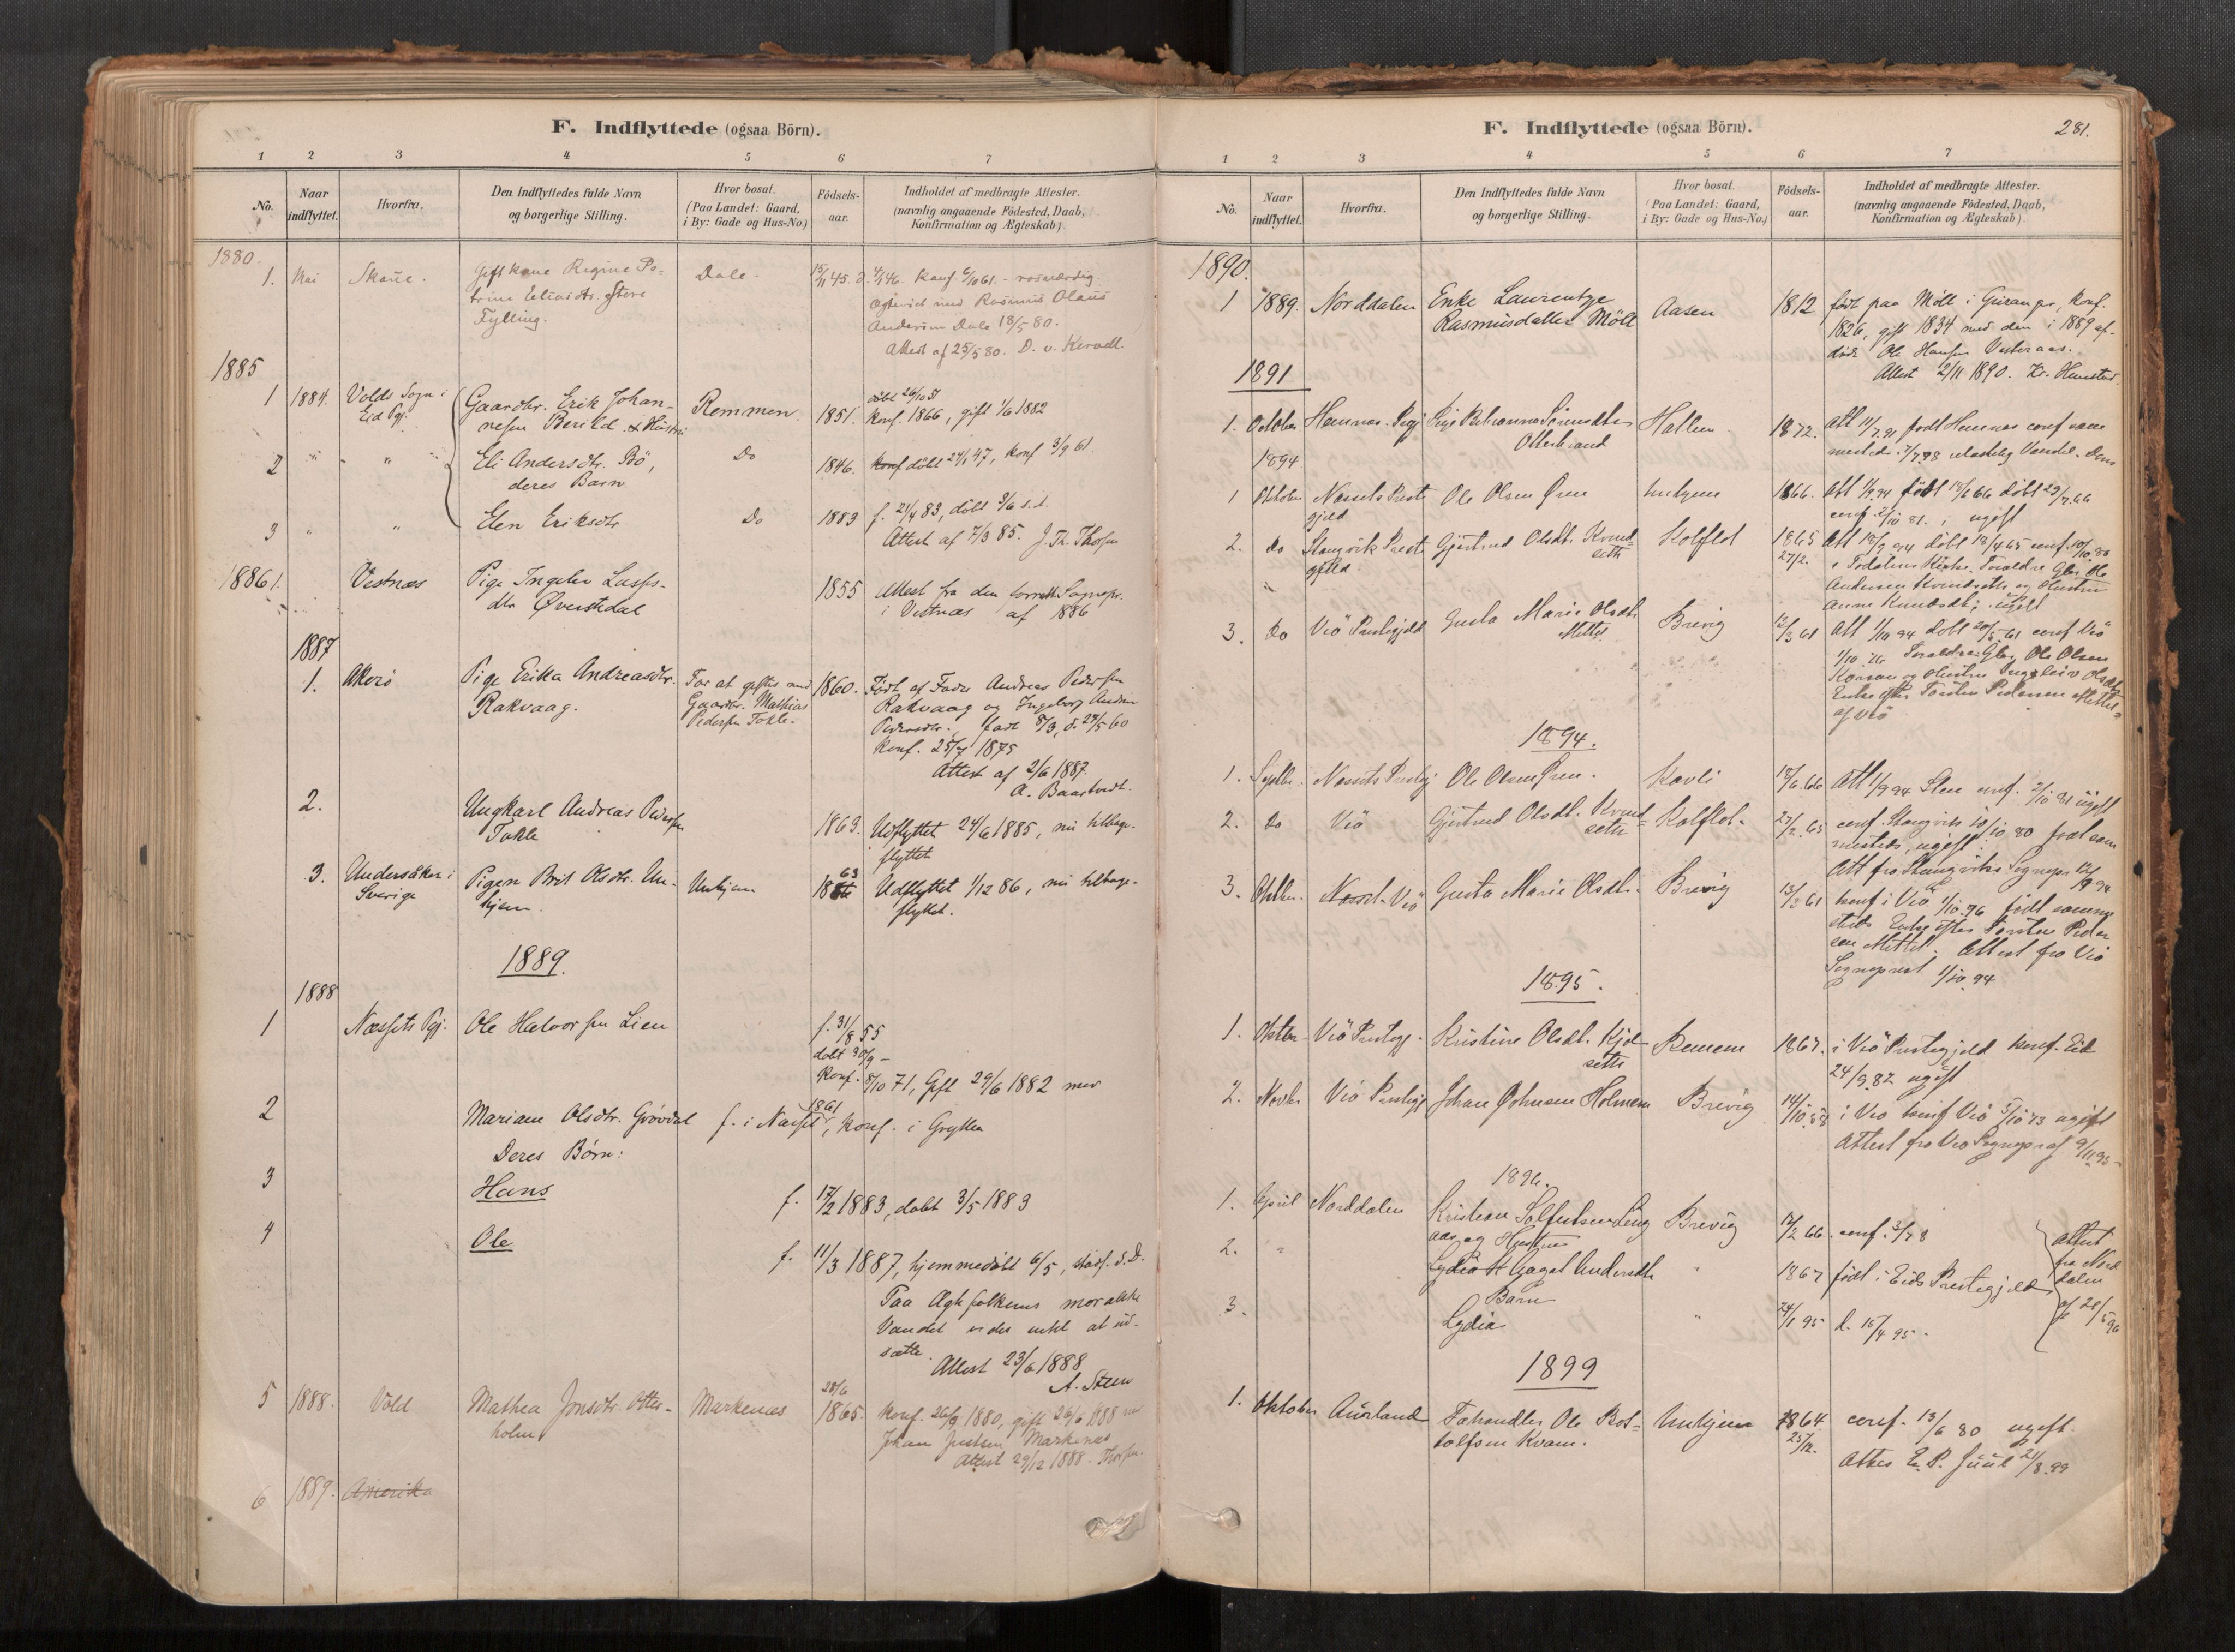 F. Indflyttede (ogsaa Börn).
1 2 3 4 5 6 7
No.
Naar indflyttet.
Hvorfra.
Den Indflyttedes fulde Navn
og borgerlige Stilling.
Hvor bosat.
(Paa Landet: Gaard,
i By: Gade og Hus-No.)
Födsels-
aar.
Indholdet af medbragte Attester.
(navnlig angaaende Födested, Daab,
Konfirmation og Ægteskab)
1880.
1. Mai Skaue. Gift kone Regine Pe-
trine Eliasdtr. Store
Fylling.
Dale.
15/11 45. d. 4/1 46. Konf. 6/10 61. -
med Rasmus Olaus
Andersen Dale 18/5 80.
Attest af 25/5 80.
1885
1 1884. Volds Sogn i
Eid Pgj.
Gaardbr. Erik Johan-
nesen Berild & Hustru
Remmen 1851.
döbt 26/10 51
Konf. 1866, gift 1/6 1882
2 " " " Eli Andersdtr. Bö,
deres Barn
Do 1846. döbt 24/1 47, Konf 3/9 61
3 " " Elen Eriksdtr Do 1883 f. 21/4 83, döbt 3/6 s.d.
Attest af 7/3 85. J. Th. Thorsen
1886 1. Vestnæs Pige Ingeber Lasses-
dtr Øverstedal
1855 Attest fra den
i Vestnæs af 1886
1887
1. Akerö Pige Erika Andreasdtr.
Rakvaag.
For at giftes med
Gaardbr. Mathias
Pedersen Tokle.
1860. Födt af Fader Andreas Pedersen
Rakvaag og Ingeborg Andrea
Pedersdtr. født 8/3, d. 28/5 60
Konf. 25/7 1875
Attest af 2/6 1887.
A. Baastvedt.
2. Ungkarl Andreas Pedersen
Tokle
1863. Udflyttet 24/6 1885, nu tilbage-
flyttet
3. Undersåker i
Sverige
Pigen Brit Olsdtr. Un-
hjem.
Unhjem 63 Udflyttet 1/12 86, nu tilbage-
flyttet.
1889.
1888
1 Nessets Pgj. Ole Halvorsen Lien f. 31/8 55
döbt 30/9 -
Konf. 8/10 71, Gift 29/6 1882 med
2 Mariane Olsdtr. Grövdal f. i Nesset 1861, Konf. i Grytten
Deres Börn:
3 Hans f. 17/2 1883, døbt 3/5 1883
4 Ole f. 11/3 1887, hjemmedöbt 6/5, stadf. s.D.
Paa Ægtefolkenes moralske
Vandel er der intet at ud-
sætte.
Attest 23/6 1888
A. Steen
5 1888. Vold Mathea Jonsdtr. Otter-
holm
Markenæs 28/6
1865. Konf. 26/9 1880, gift 26/6 1888 med
Johan Justsen Markenæs
Attest 29/12 1888. Thorsen.
6 1889. Amerika
F. Indflyttede (ogsaa Börn).
281.
1 2 3 4 5 6 7
No.
Naar indflyttet.
Hvorfra.
Den Indflyttedes fulde Navn
og borgerlige Stilling.
Hvor bosat.
(Paa Landet: Gaard,
i By: Gade og Hus-No.)
Födsels-
aar.
Indholdet af medbragte Attester.
(navnlig angaaende Födested, Daab,
Konfirmation og Ægteskab)
1890.
1 1889. Norddalen Enke Laurentze
Rasmusdatter Möll
Aasen 1812 födt paa Möll i Geiranger, Konf.
1826, gift 1834 med den i 1889 af-
døde Ole Hansen Vesteraas.
Attest 2/11 1890. Kr. Hemstad
1891
1. October Hemnes Pgj Pige Petrianna Sörensdtr
Otterstrand
Hallem 1872. Att 11/7.91 født Hemnes conf samme
mested
1894
1 Oktober Nessets Preste
gjeld
Ole Olsen Øren Unhjem 1866. Att 1/9.94 født 18/6 66 döbt 29/7.66
conf 2/10 81. ; ugift
2. Do Stangvik Preste
gjeld.
Gjertrud Olsdt. Kvend
seth
Kolflot 1865
27/2.
Att 18/9 94 döbt 18/4 65 conf. 10/10.80
i Todalens Kirke. Forældre Gbr. Ole
Andersen Kvendseth og Hustru
Anne Knudsdt; ugift
3. Do Veö Prestegjeld Gusta Marie Olsdt.
Mittet
Brevig 13/3 61 Att 1/10 94 døbt 20/5 61 conf Veö
1/10 76 Forældre: Gbr. Ole Olsen
og Hustru Ingeleiv Olsdt
Enke efter Torsten Pedersen Mittet
af Veö
1894.
1. Septbr. Nessets Prestgj Ole Olsen Øren. Kavli 18/6.66 Att 1/9 94 Steen conf. 2/10 81 ugift
2. Do Veö Gjertrud Olsdt. Kvend-
seth
Kolflot. 27/2.65 conf. Stangvik 10/10 80 født sam
mesteds, ugift.
Att fra Stangviks Sognepr 18/9 94
3. Oktbr. Nesset Veö Gusta Marie Olsdt. Brevig 13/3 61 konf i Veö 1/10.76 født samme
steds Enke efter Torsten Peder
sen Mittet. Attest fra Veö
Sogneprest 1/10 94
1895.
1. Oktbr Veö Prestegj. Kristine Olsdt. Kjøl
seth
Remem 1867. i Veö Prestegjeld konf. Eid
24/9 82 ugift
2. Novbr Veö Prestegj Johan Johnsen Holmem Brevig 14/10.58 i Veö konf Veö 5/10 73 ugift
Attest fra Veö Sognepr af 9/11 95
1896.
1. April Norddalen Kristian Solfestsen Ling
aas og Hustru
Brevig 12/2 66. conf. 3/7 8
2. " Lydia Andersdt " 1867 født i Eids Prestegjeld
Barn
3. Lydia " 24/1 95 d. 15/4 95.
Attest
fra Nord
dalen
af 28/5 96
1899
1. Oktober Aurland Fæhandler Ole Bot-
tolfsen Kvam.
Unhjem 1864
25/12.
conf. 13/6 80 ugift.
Attes E. P. Juul 21/8.99